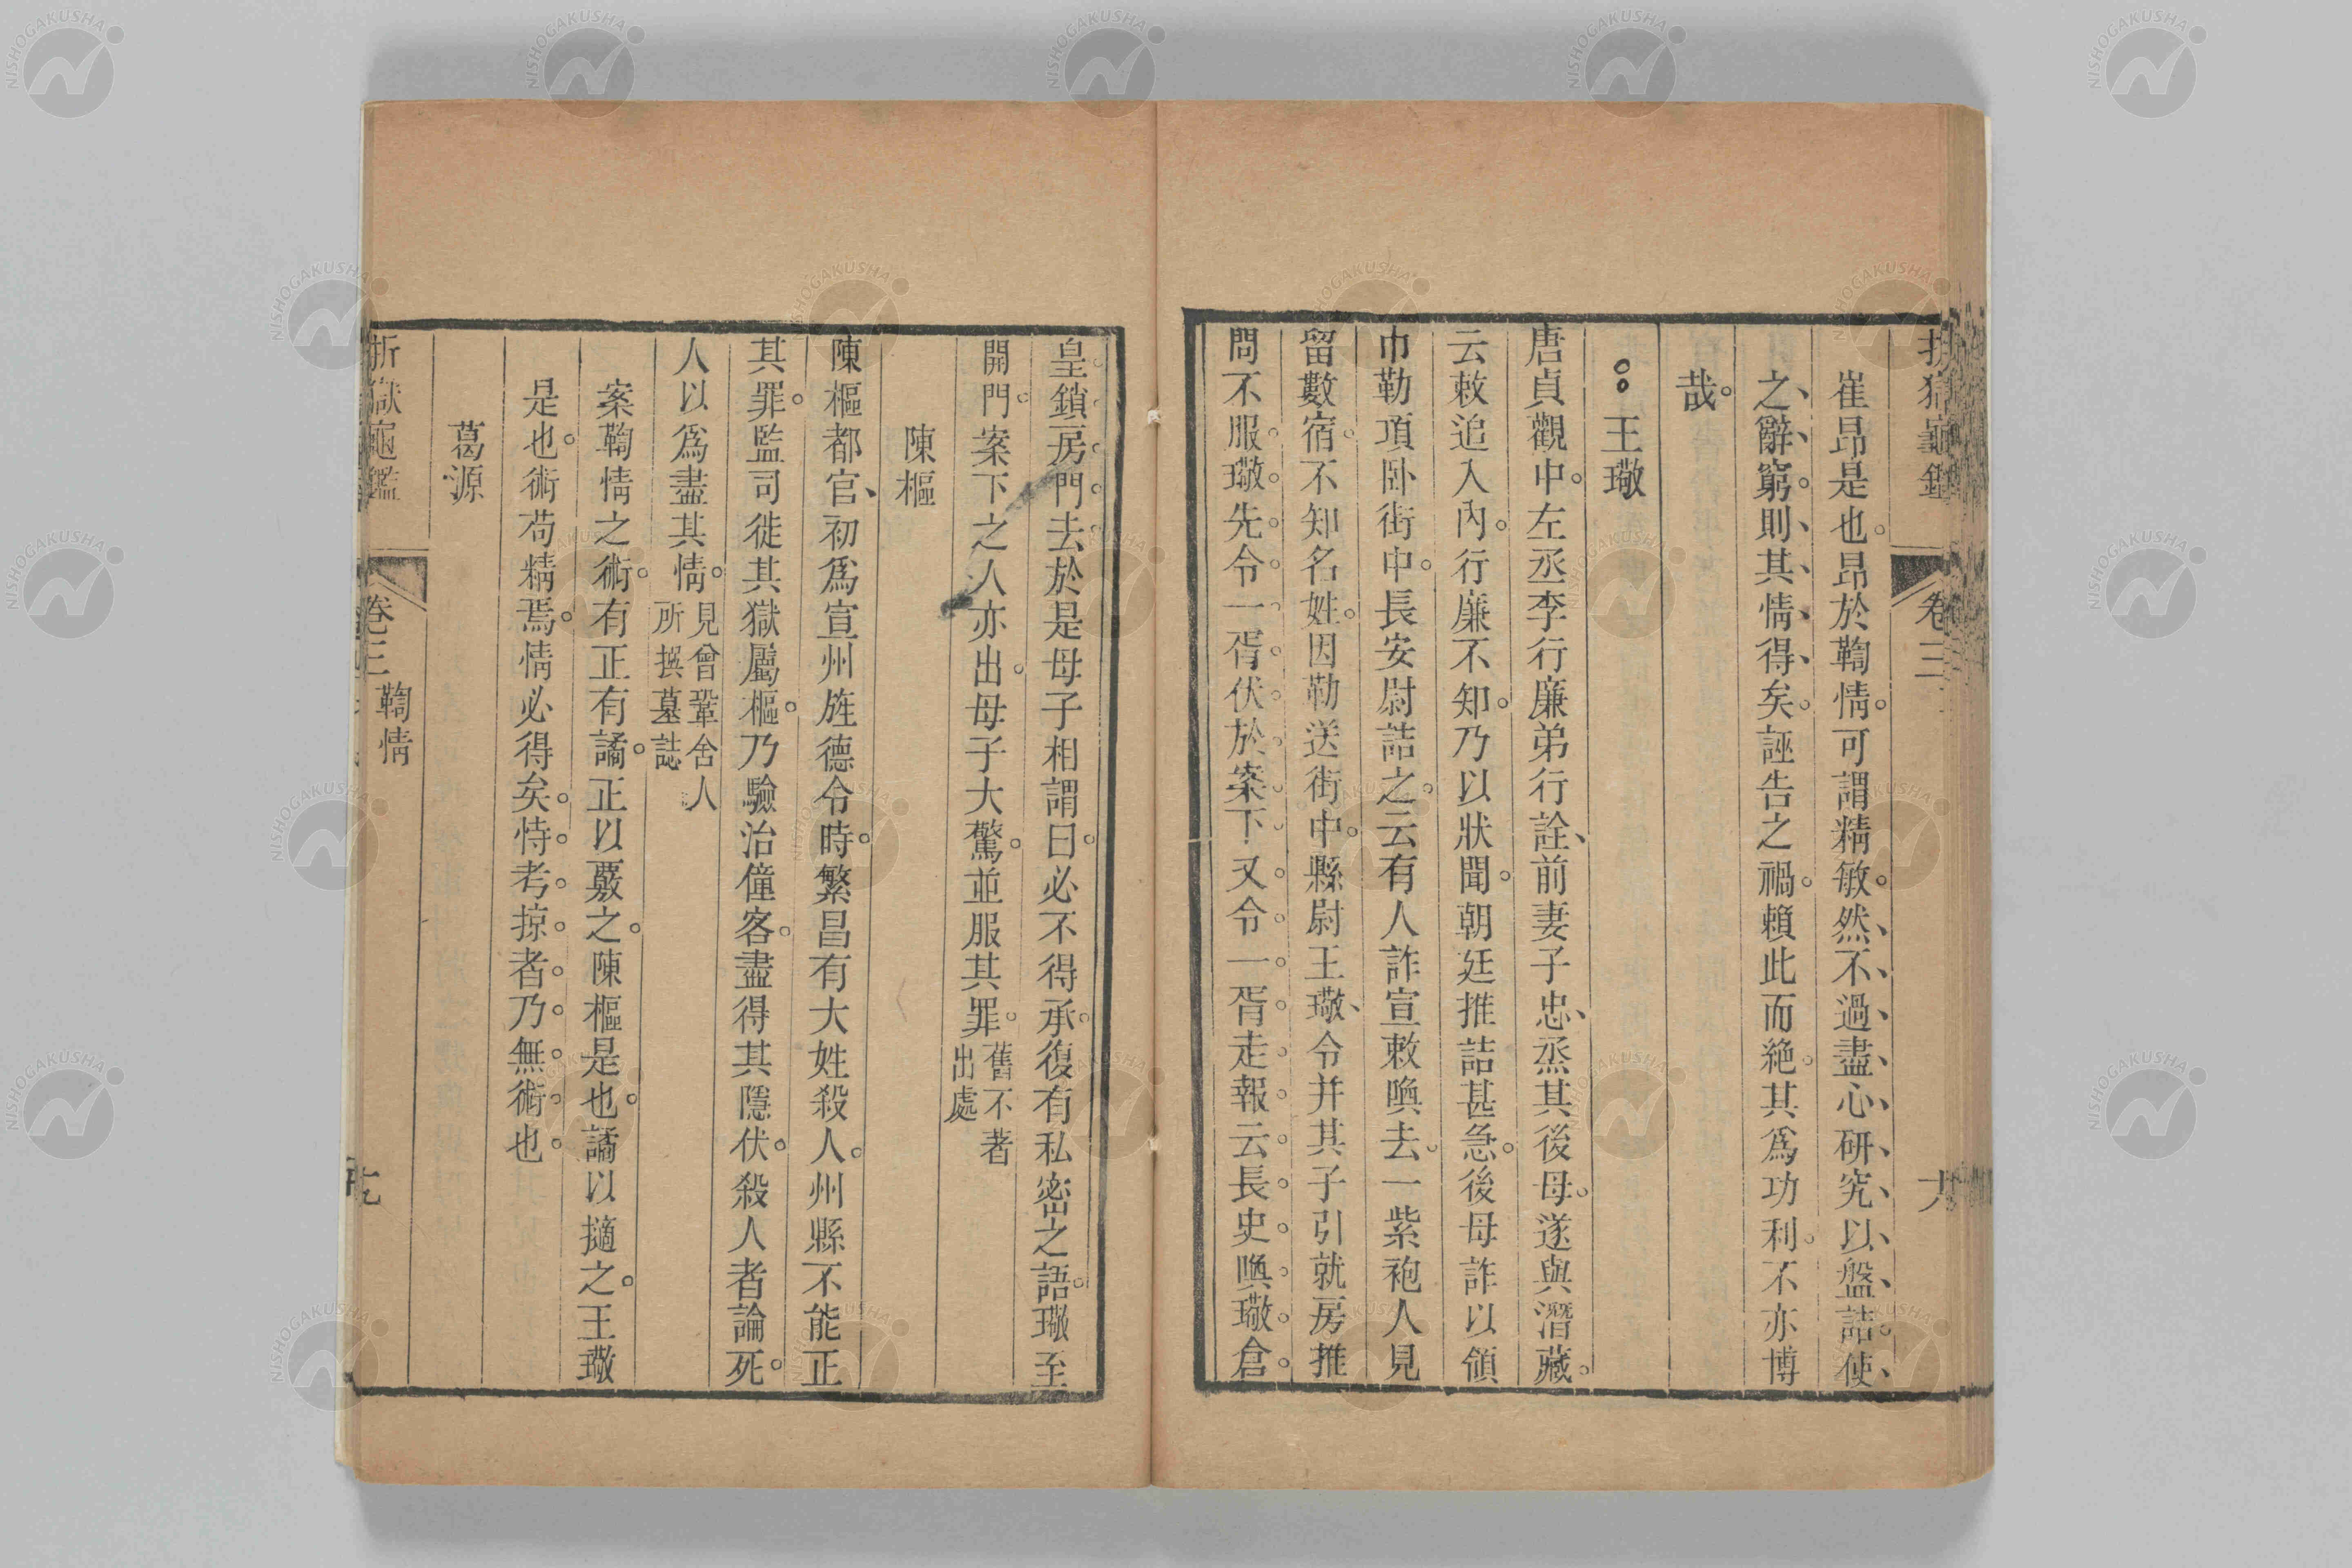 折獄龜鑑 卷三 十六
崔昂是也。昂於鞫情。可謂精敏。然、不、過、盡、心、研、究、以、盤、詰。使、
之、辭、窮。則、其、情、得、矣。誣告之禍。賴此而絶。其爲功利。不亦博
哉。
王璥
唐貞觀中。左丞李行廉弟行詮、前妻子忠、烝其後母。遂與潛藏。
云敕追入內。行廉不知。乃以狀聞。朝廷推詰甚急。後母詐以領
巾勒項臥街中。長安尉詰之。云有人詐宣敕喚去。一紫袍人見
留數宿。不知名姓。因勒送街中。縣尉王璥、令并其子引就房推
問不服。璥。先。令。一。胥。伏。於。案。下。又。令。一。胥。走。報。云。長。史。喚。璥。倉。
皇。鎖。房。門。去。於是母子相謂曰。必不得承。復有私密之語。璥至
開門。案下之人亦出。母子大驚。並服其罪。舊不著
出處
陳樞
陳樞都官、初爲宣州旌德令時。繁昌有大姓殺人。州縣不能正
其罪。監司徙其獄屬樞。乃驗治僮客。盡得其隱伏。殺人者論死。
人以爲盡其情。見曾鞏舍人
所撰墓誌
案鞫情之術。有正有譎。正以覈之。陳樞是也。譎以擿之。王璥
是也。術苟精焉。情必得矣。恃。考。掠。者。乃。無。術。也。
葛源
折獄龜鑑 卷三 鞫情 十七
NISHOGAKUSHA